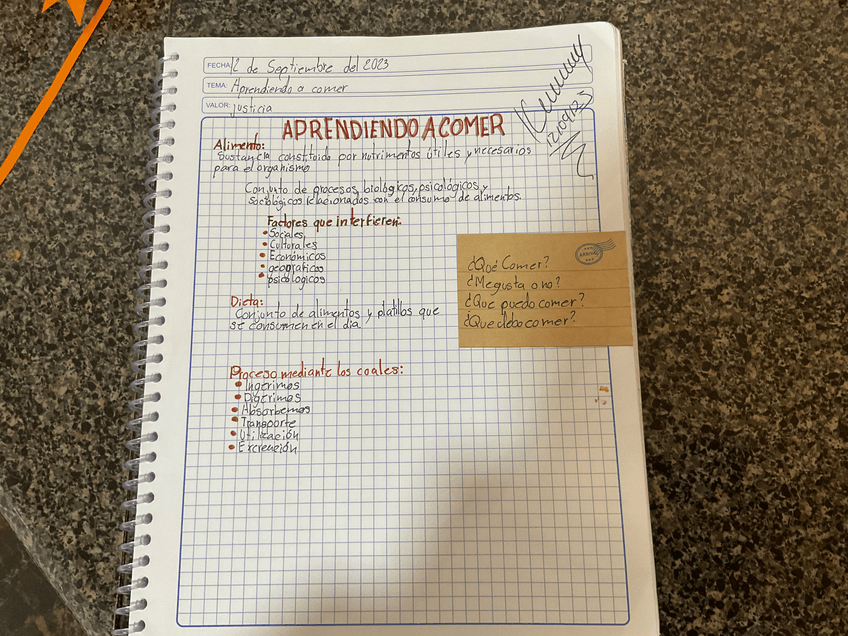 FECHA: 2 de Septiembre del 2023
TEMA: Aprendiendo a comer
VALOR: justicia
APRENDIENDO A COMER
12/09/23
Alimento:
Sustancia constituido por nutrimentos útiles y necesarios
para el organismo
Conjunto de procesos, biológicos, psicológicos y
sociológicos relacionados con el consumo de alimentos.
Factores que interfieren:
• Sociales
• Culturales
• Económicos
• geograficos
• psicologicos
ARRIVAL
¿Qué Comer?
¿Me gusta o no?
¿Que puedo comer?
¿Que debo comer?
Dieta:
Conjunto de alimentos y platillos que
se consumen en el dia
Proceso mediante los coales:
• Ingerimos
• Digerimos
• Absorbemos
• Transporte
• Utilización
• Excreción